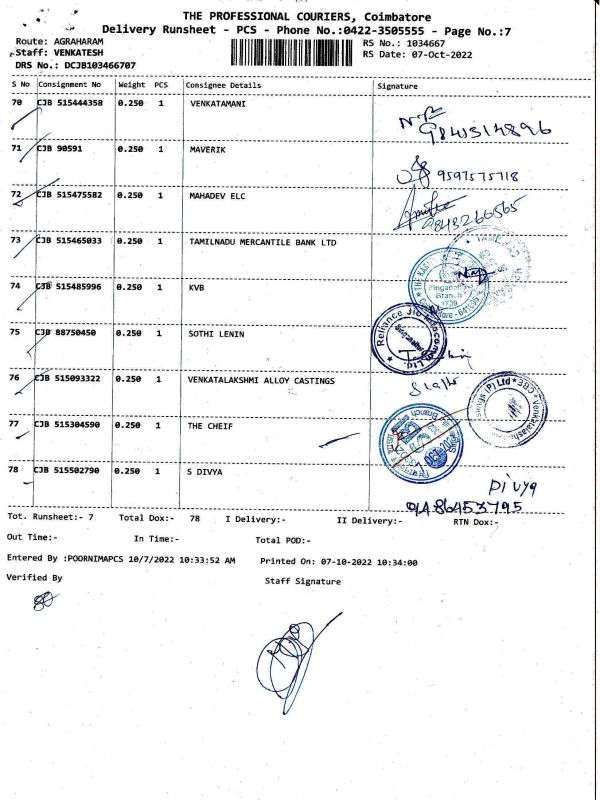 THE PROFESSIONAL COURIERS, Coimbatore
Delivery Runsheet - PCS - Phone No.:0422-3505555 - Page No.:7
Route: AGRAHARAM RS No.: 1034667
Staff: VENKATESH RS Date: 07-Oct-2022
DRS No.: DCJB103466707
S No Consignment No Weight PCS Consignee Details Signature
70 CJB 515444358 0.250 1 VENKATAMANI
71 CJB 90591 0.250 1 MAVERIK
9597575718
72 CJB 515475582 0.250 1 MAHADEV ELC
9843266565
73 CJB 515465033 0.250 1 TAMILNADU MERCANTILE BANK LTD
74 CJB 515485996 0.250 1 KVB
Branch
75 CJB 88750450 0.250 1 SOTHI LENIN
Reliance Jio Infocomm Ltd.
76 CJB 515093322 0.250 1 VENKATALAKSHMI ALLOY CASTINGS
77 CJB 515304590 0.250 1 THE CHEIF
78 CJB 515502790 0.250 1 S DIVYA
Divya
9486453795
Tot. Runsheet:- 7 Total Dox:- 78 I Delivery:- II Delivery:- RTN Dox:-
Out Time:- In Time:- Total POD:-
Entered By :POORNIMAPCS 10/7/2022 10:33:52 AM Printed On: 07-10-2022 10:34:00
Verified By Staff Signature